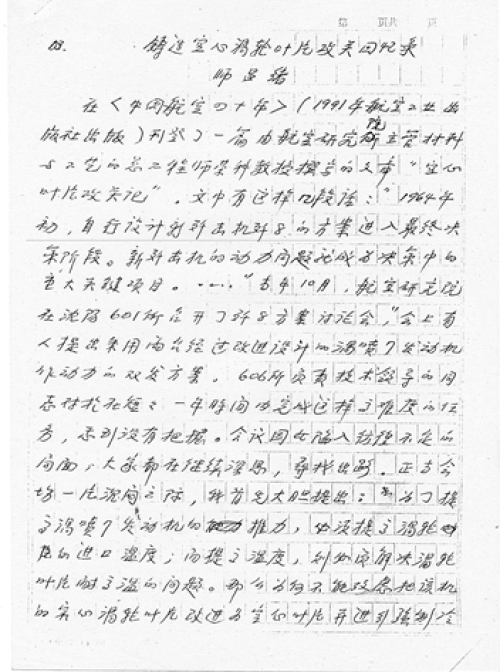 第 页共 页
03. 铸造空心涡轮叶片攻关回忆录
师昌绪
在《中国航空四十年》(1991年航空工业出
版社出版)刊登了一篇由航空研究院主管材料
与工艺的总工程师荣科教授撰写的文章"空心
叶片攻关记",文中有这样几段话:"1964年
初,自行设计新歼击机歼8的方案进入最终决
策阶段。新歼击机的动力问题就成为决策中的
重大关键项目。……"去年10月,航空研究院
在沈阳601所召开了歼8方案讨论会,"会上有
人提出采用两台经过改进设计的涡喷7发动机
作动力的双发方案。606所负责技术领导的同
志对于在短短一年时间内完成这样高难度的任
务,感到没有把握。会议因而陷入犹豫不定的
局面,大家都在继续深思,寻找出路。正当会
场一片沉闷之际,我首先大胆提出:"为了提
高涡喷7发动机的推力,必须提高涡轮
的进口温度;而提高温度,则必须解决涡轮
叶片耐高温的问题。那么为何不能考虑把该机
的实心涡轮叶片改进为空心叶片并进行强制冷